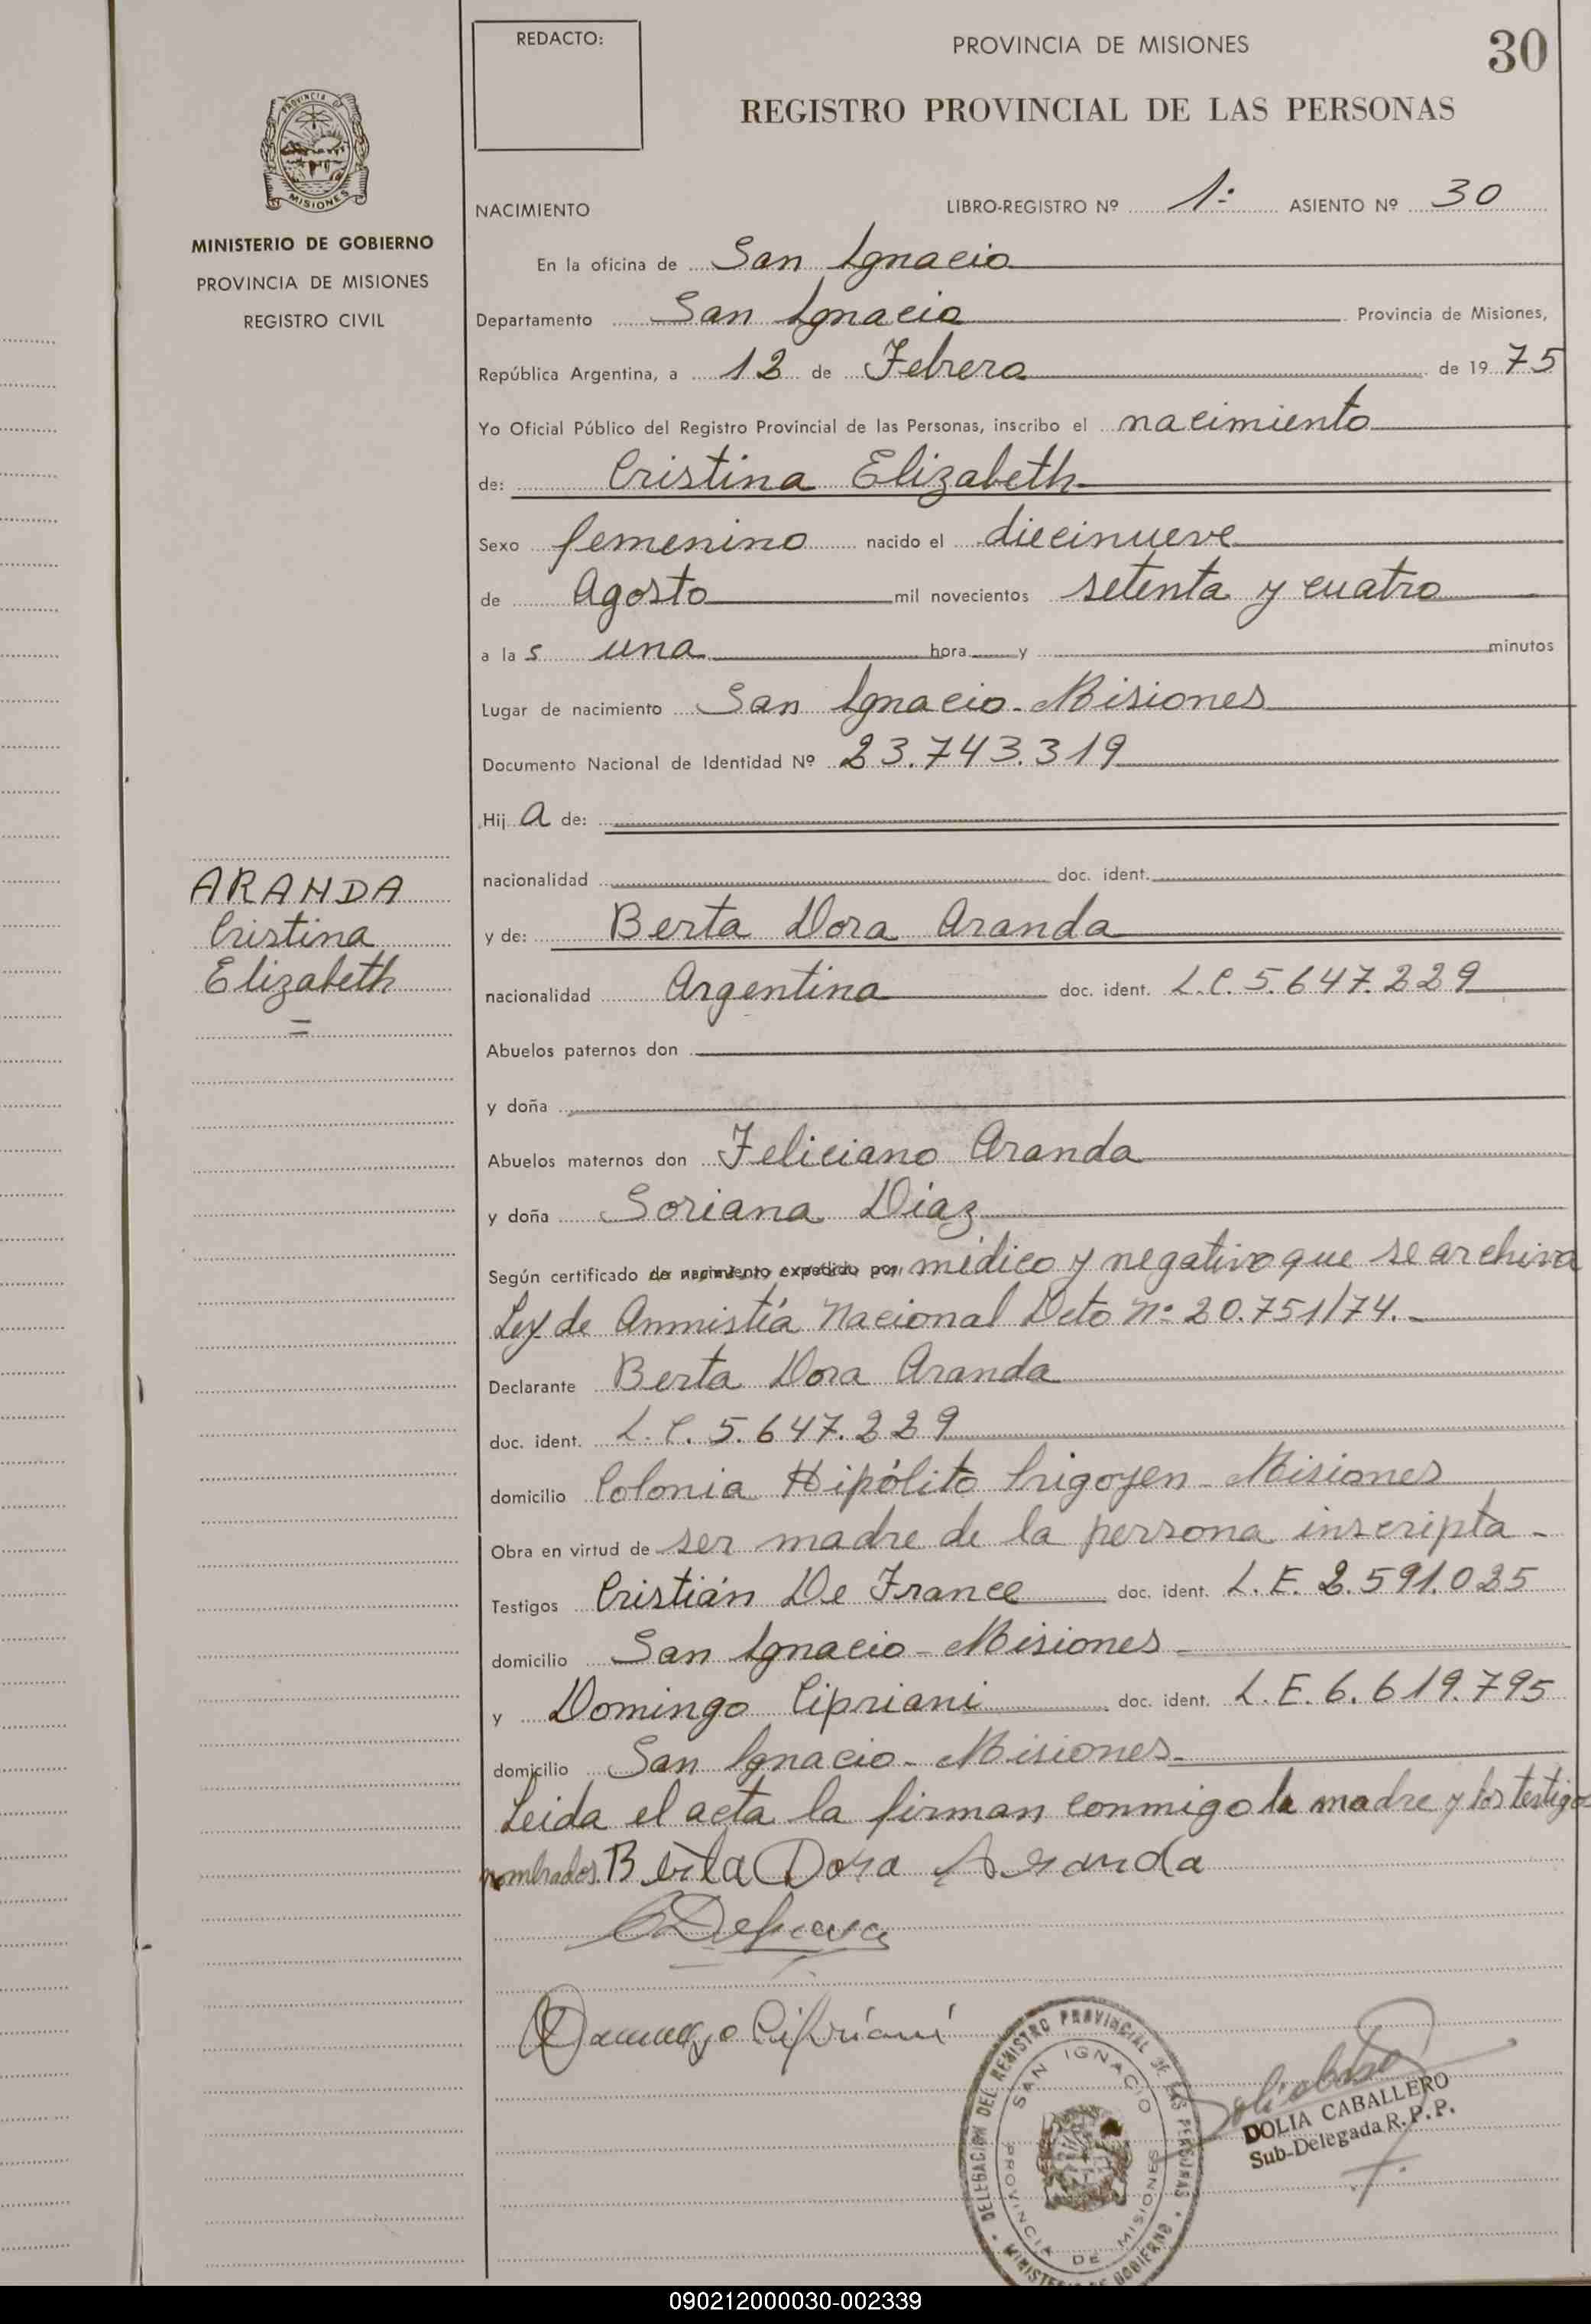 REDACTO:
PROVINCIA DE MISIONES
30
REGISTRO PROVINCIAL DE LAS PERSONAS
PROVINCIA DE
MISIONES
MINISTERIO DE GOBIERNO
PROVINCIA DE MISIONES
REGISTRO CIVIL
NACIMIENTO
LIBRO-REGISTRO Nº 1º ASIENTO Nº 30
En la oficina de San Ignacio
Departamento San Ignacio Provincia de Misiones,
República Argentina, a 12 de Febrero de 1975
Yo Oficial Público del Registro Provincial de las Personas, inscribo el nacimiento
de: Cristina Elizabeth
Sexo femenino nacido el diecinueve
de Agosto mil novecientos setenta y cuatro
a las una hora y minutos
Lugar de nacimiento San Ignacio - Misiones
Documento Nacional de Identidad Nº 23.743.319
Hija de:
nacionalidad doc. ident.
ARANDA
Cristina
Elizabeth
=
y de: Berta Dora Aranda
nacionalidad Argentina doc. ident. L.C. 5.647.229
Abuelos paternos don
y doña
Abuelos maternos don Feliciano Aranda
y doña Soriana Diaz
Según certificado de nacimiento expedido por médico y negativo que se archiva
Ley de Anmistía Nacional Dcto Nº 20.751/74.-
Declarante Berta Dora Aranda
doc. ident. L.C. 5.647.229
domicilio Colonia Hipólito Irigoyen - Misiones
Obra en virtud de ser madre de la persona inscripta -
Testigos Cristián De France doc. ident. L.E. 2.591.025
domicilio San Ignacio - Misiones
y Domingo Cipriani doc. ident. L.E. 6.619.795
domicilio San Ignacio - Misiones
Leida el acta la firman conmigo la madre y los testigos
nombrados. Berta Dora Aranda
Domingo Cipriani
DELEGACION DEL REGISTRO PROVINCIAL DE LAS PERSONAS
MINISTERIO DE GOBIERNO
SAN IGNACIO
PROVINCIA DE MISIONES
DOLIA CABALLERO
Sub-Delegada R.P.P.
090212000030-002339